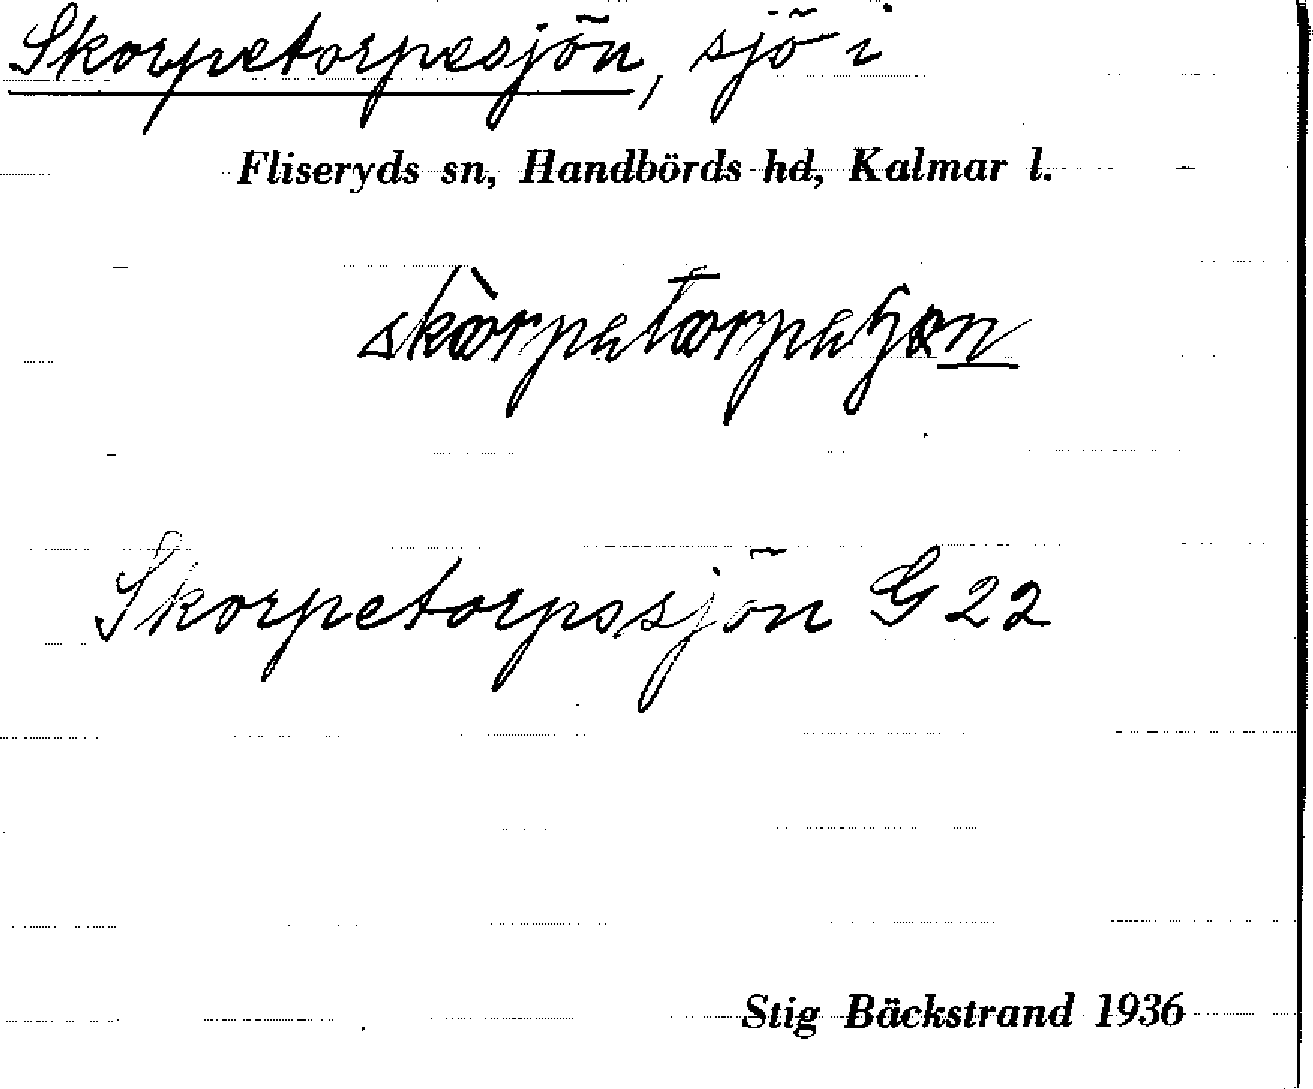 Skorpetorpesjön, sjö i
Fliseryds sn, Handbörds hd, Kalmar l.
Skorpetorpssjön G 22
Stig Bäckstrand 1936